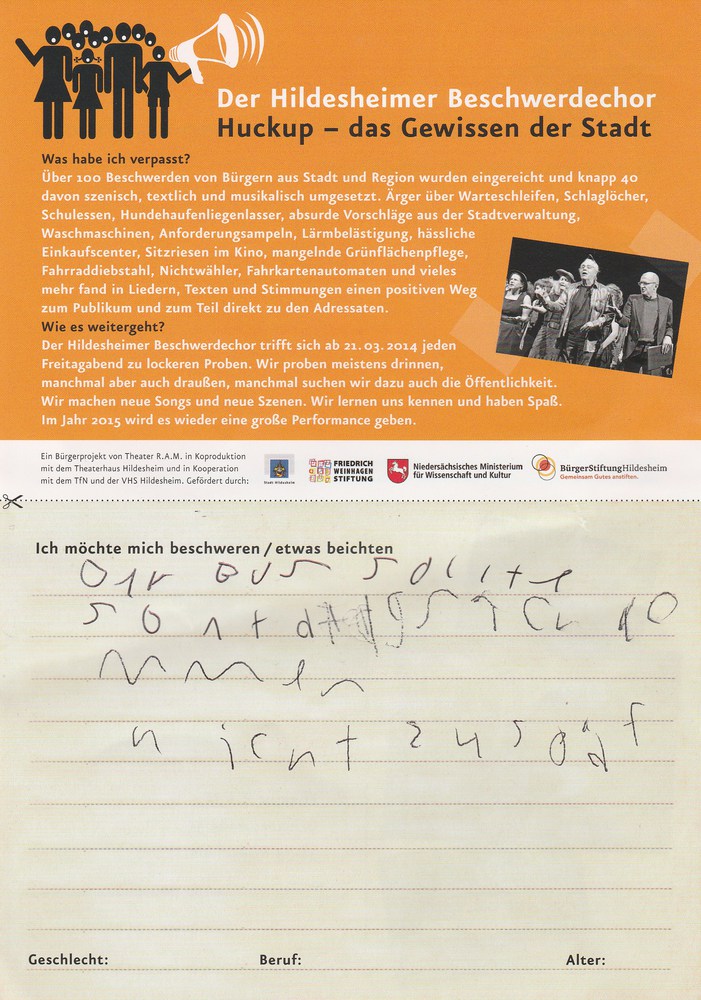 Der Hildesheimer Beschwerdechor
Huckup – das Gewissen der Stadt
Was habe ich verpasst?
Über 100 Beschwerden von Bürgern aus Stadt und Region wurden eingereicht und knapp 40
davon szenisch, textlich und musikalisch umgesetzt. Ärger über Warteschleifen, Schlaglöcher,
Schulessen, Hundehaufenliegenlasser, absurde Vorschläge aus der Stadtverwaltung,
Waschmaschinen, Anforderungsampeln, Lärmbelästigung, hässliche
Einkaufscenter, Sitzriesen im Kino, mangelnde Grünflächenpflege,
Fahrraddiebstahl, Nichtwähler, Fahrkartenautomaten und vieles
mehr fand in Liedern, Texten und Stimmungen einen positiven Weg
zum Publikum und zum Teil direkt zu den Adressaten.
Wie es weitergeht?
Der Hildesheimer Beschwerdechor trifft sich ab 21.03.2014 jeden
Freitagabend zu lockeren Proben. Wir proben meistens drinnen,
manchmal aber auch draußen, manchmal suchen wir dazu auch die Öffentlichkeit.
Wir machen neue Songs und neue Szenen. Wir lernen uns kennen und haben Spaß.
Im Jahr 2015 wird es wieder eine große Performance geben.
Ein Bürgerprojekt von Theater R.A.M. in Koproduktion
mit dem Theaterhaus Hildesheim und in Kooperation
mit dem TfN und der VHS Hildesheim. Gefördert durch:
Stadt Hildesheim
FRIEDRICH
WEINHAGEN
STIFTUNG
Niedersächsisches Ministerium
für Wissenschaft und Kultur
BürgerStiftungHildesheim
Gemeinsam Gutes anstiften.
Ich möchte mich beschweren / etwas beichten
Der Bus sollte
nicht zuspät
Geschlecht: Beruf: Alter: